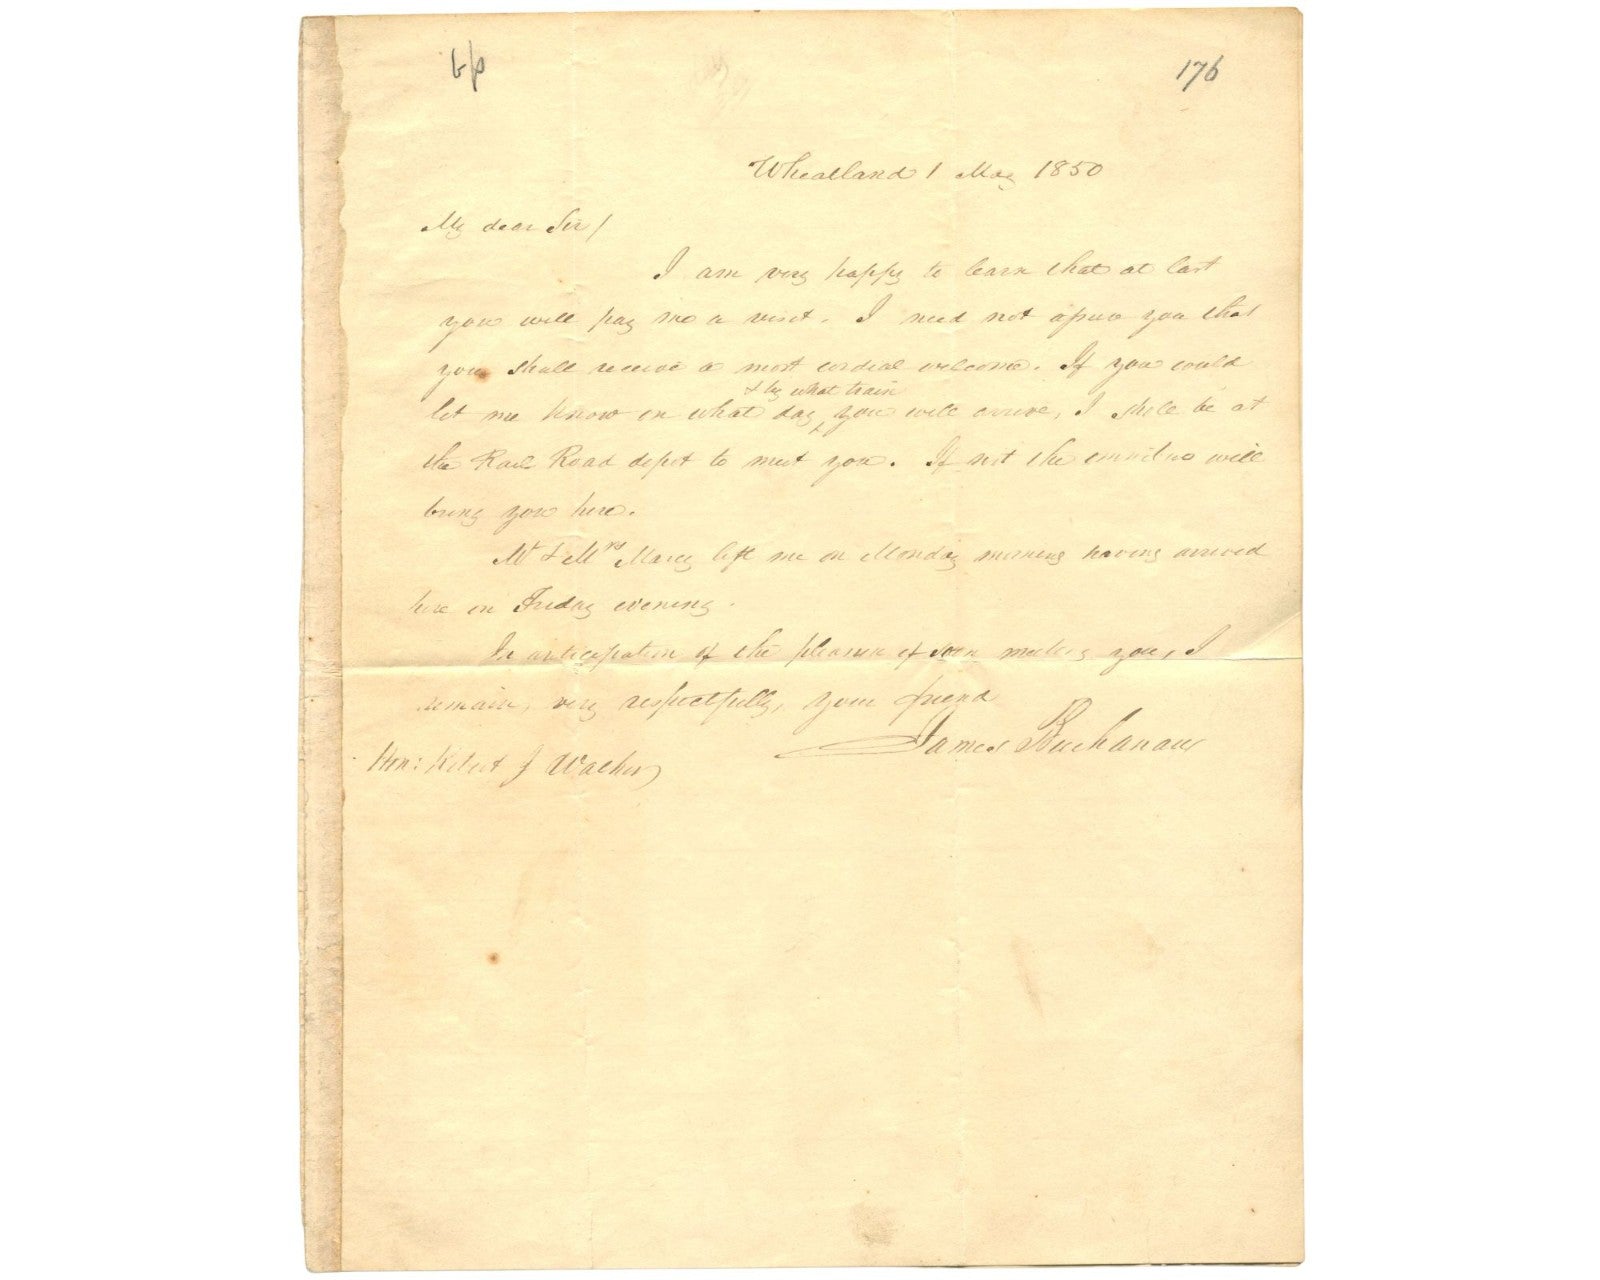 176
Wheatland 1 May 1850
My dear Sir/
I am very happy to learn that at last
you will pay me a visit. I need not assure you that
you shall receive a most cordial welcome. If you would
& by what train
let me know on what day you will arrive, I shall be at
the Rail Road depot to meet you. If not the omnibus will
bring you here.
Mr & Mrs Marcy left me on Monday morning having arrived
here on Friday evening.
In anticipation of the pleasure of soon meeting you, I
remain, very respectfully, your friend
James Buchanan
Hon: Robert J Walker